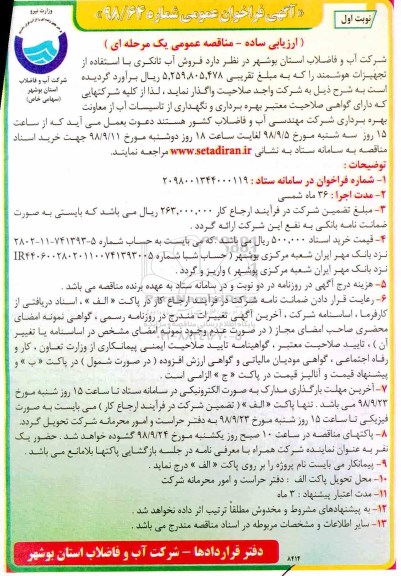 نوبت اول
«آگهی فراخوان عمومی شماره ۹۸/۶۴»
وزارت نیرو
شرکت آب و فاضلاب
استان بوشهر
(سهامی خاص)
( ارزیابی ساده - مناقصه عمومی یک مرحله ای )
شرکت آب و فاضلاب استان بوشهر در نظر دارد فروش آب تانکری با استفاده از
تجهیزات هوشمند را که به مبلغ تقریبی ۵,۲۵۹,۸۰۵,۴۷۸ ریال برآورد گردیده
است به شرح ذیل به شرکت واجد صلاحیت واگذار نماید ، لذا از کلیه شرکتهایی
که دارای گواهی صلاحیت معتبر بهره برداری و نگهداری از تاسیسات آب از معاونت
بهره برداری شرکت مهندسی آب و فاضلاب کشور هستند دعوت بعمل می آید که از ساعت
۱۵ روز سه شنبه مورخ ۹۸/۹/۵ لغایت ساعت ۱۸ روز دوشنبه مورخ ۹۸/۹/۱۱ جهت خرید اسناد
مناقصه به سامانه ستاد به نشانی www.setadiran.ir مراجعه نمایند.
توضیحات :
۱- شماره فراخوان در سامانه ستاد : ۲۰۹۸۰۰۱۳۴۴۰۰۰۱۱۹
۲- مدت اجرا : ۳۶ ماه شمسی
۳- مبلغ تضمین شرکت در فرآیند ارجاع کار ۲۶۳,۰۰۰,۰۰۰ ریال می باشد که بایستی به صورت
ضمانت نامه بانکی به نفع این شرکت ارائه گردد .
۴- قیمت خرید اسناد ۵۰۰,۰۰۰ ریال می باشد که می بایست به حساب شماره ۵-۷۴۱۳۹۳-۱۱-۲۸۰۲
نزد بانک مهر ایران شعبه مرکزی بوشهر ( حساب شبا شماره IR۴۴۰۶۰۰۲۸۰۲۰۱۱۰۰۷۴۱۳۹۳۰۰۵
نزد بانک مهر ایران شعبه مرکزی بوشهر ) واریز و گردد .
۵- هزینه درج آگهی در روزنامه در دو نوبت و در سامانه ستاد به عهده برنده مناقصه می باشد .
۶- رعایت قرار دادن ضمانت نامه شرکت در فرآیند ارجاع کار در پاکت « الف » ، اسناد دریافتی از
کارفرما ، اساسنامه شرکت ، آخرین آگهی تغییرات مندرج در روزنامه رسمی ، گواهی نمونه امضای
محضری صاحب امضای مجاز ( در صورت عدم وجود نمونه امضای مشخص در اساسنامه یا تغییر
آن ) ، تایید صلاحیت معتبر ، گواهینامه تایید صلاحیت ایمنی پیمانکاری از وزارت تعاون ، کار و
رفاه اجتماعی ، گواهی مودیان مالیاتی و گواهی ارزش افزوده ( در صورت شمول ) در پاکت « ب » و
پیشنهاد قیمت و آنالیز قیمت در پاکت « ج » الزامی است .
۷- آخرین مهلت بارگذاری مدارک به صورت الکترونیکی در سامانه ستاد تا ساعت ۱۵ روز شنبه مورخ
۹۸/۹/۲۳ می باشد . تنها پاکت «الف» ( تضمین شرکت در فرآیند ارجاع کار ) می بایست به صورت
فیزیکی تا ساعت ۱۵ روز شنبه مورخ ۹۸/۹/۲۳ به دفتر حراست و امور محرمانه شرکت تحویل گردد.
۸- پاکتهای مناقصه در ساعت ۱۰ صبح روز یکشنبه مورخ ۹۸/۹/۲۴ گشوده خواهد شد . حضور یک
نفر به عنوان نماینده شرکت همراه با معرفی نامه در جلسه بازگشایی پاکتها بلامانع می باشد .
۹- پیمانکار می بایست نام پروژه را بر روی پاکت « الف » درج نماید .
۱۰- محل تحویل پاکت الف : دفتر حراست و امور محرمانه شرکت
۱۱- مدت اعتبار پیشنهاد : ۳ ماه
۱۲- به پیشنهادهای مشروط و مخدوش مطلقاً ترتیب اثر داده نخواهد شد .
۱۳- سایر اطلاعات و مشخصات مربوطه در اسناد مناقصه مندرج می باشد .
۸۴۱۴
دفتر قراردادها – شرکت آب و فاضلاب استان بوشهر